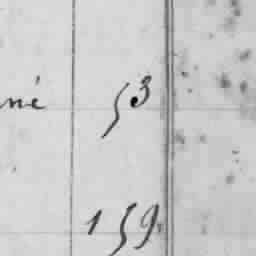 né 53
159.